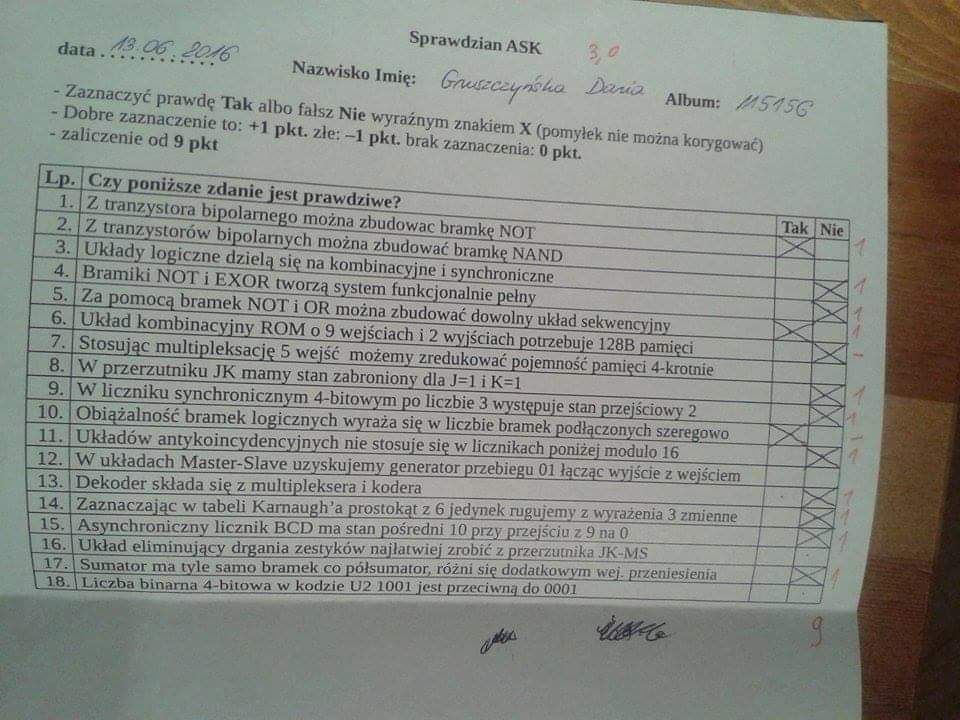 Sprawdzian ASK 3,0
data 13.06.2016
Nazwisko Imię: Gruszczyńska Daria Album: 115156
- Zaznaczyć prawdę Tak albo fałsz Nie wyraźnym znakiem X (pomyłek nie można korygować)
- Dobre zaznaczenie to: +1 pkt. złe: –1 pkt. brak zaznaczenia: 0 pkt.
- zaliczenie od 9 pkt
Lp. Czy poniższe zdanie jest prawdziwe? Tak Nie
1. Z tranzystora bipolarnego można zbudowac bramkę NOT
2. Z tranzystorów bipolarnych można zbudować bramkę NAND
3. Układy logiczne dzielą się na kombinacyjne i synchroniczne
4. Bramiki NOT i EXOR tworzą system funkcjonalnie pełny
5. Za pomocą bramek NOT i OR można zbudować dowolny układ sekwencyjny
6. Układ kombinacyjny ROM o 9 wejściach i 2 wyjściach potrzebuje 128B pamięci
7. Stosując multipleksację 5 wejść możemy zredukować pojemność pamięci 4-krotnie
8. W przerzutniku JK mamy stan zabroniony dla J=1 i K=1
9. W liczniku synchronicznym 4-bitowym po liczbie 3 występuje stan przejściowy 2
10. Obiążalność bramek logicznych wyraża się w liczbie bramek podłączonych szeregowo
11. Układów antykoincydencyjnych nie stosuje się w licznikach poniżej modulo 16
12. W układach Master-Slave uzyskujemy generator przebiegu 01 łącząc wyjście z wejściem
13. Dekoder składa się z multipleksera i kodera
14. Zaznaczając w tabeli Karnaugh'a prostokąt z 6 jedynek rugujemy z wyrażenia 3 zmienne
15. Asynchroniczny licznik BCD ma stan pośredni 10 przy przejściu z 9 na 0
16. Układ eliminujący drgania zestyków najłatwiej zrobić z przerzutnika JK-MS
17. Sumator ma tyle samo bramek co półsumator, różni się dodatkowym wej. przeniesienia
18. Liczba binarna 4-bitowa w kodzie U2 1001 jest przeciwną do 0001
9